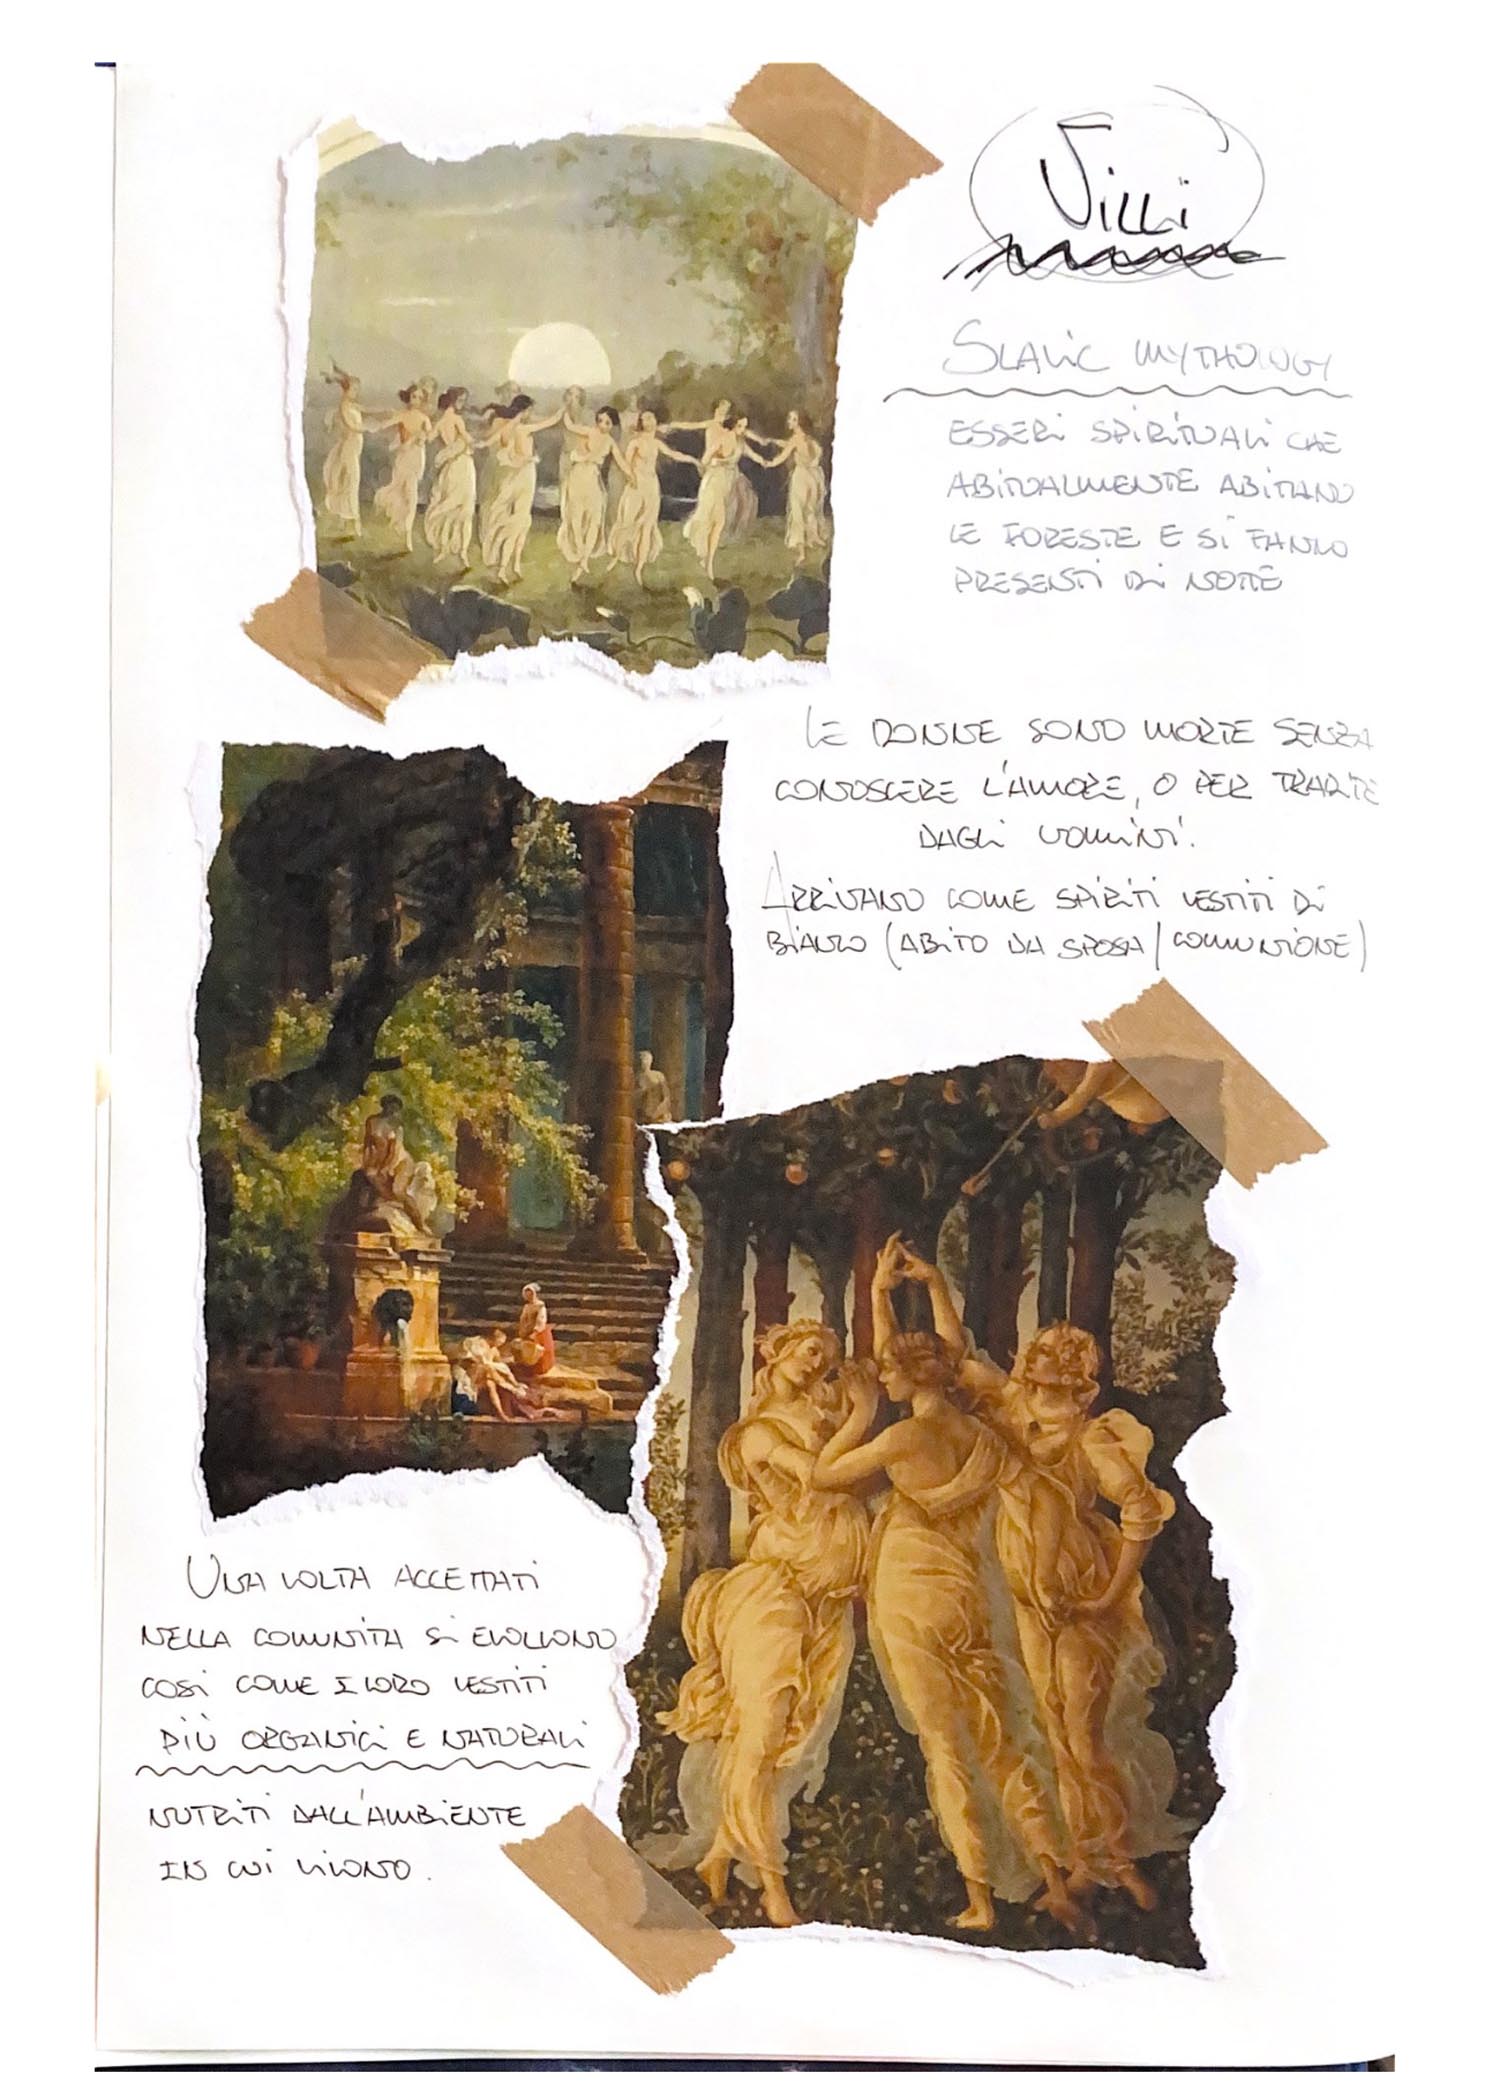 Villi
SLAVIC MYTHOLOGY
ESSERI SPIRITUALI CHE
ABITUALMENTE ABITANO
LE FORESTE E SI FANNO
PRESENTI DI NOTTE
LE DONNE SONO MORTE SENZA
CONOSCERE L'AMORE, O PER TRADITE
DAGLI UOMINI.
ARRIVANO COME SPIRITI VESTITI DI
BIANCO (ABITO DA SPOSA / COMUNIONE)
UNA VOLTA ACCETTATI
NELLA COMUNITÀ SI EVOLVONO
COSÌ COME I LORO VESTITI
PIÙ ORGANICI E NATURALI
NUTRITI DALL'AMBIENTE
IN CUI VIVONO.